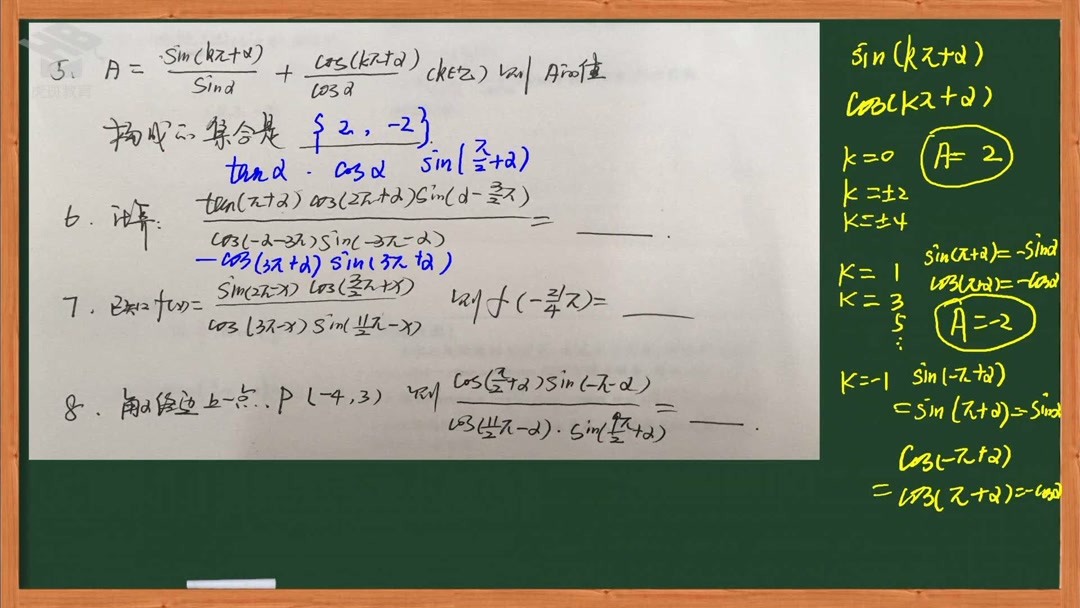 5. A = sin(kπ+α)/sinα + cos(kπ+α)/cosα (k∈Z) 则 A的值
构成的集合是 {2, -2}.
tanα · cosα sin(π/2+α)
6. 计算: tan(π+α) cos(2π+α) sin(α-3/2π) / cos(-α-3π) sin(-3π-α) = ____.
-cos(3π+α) sin(3π+α)
7. 已知 f(x) = sin(2π-x) cos(3/2π+x) / cos(3π-x) sin(11/2π-x) 则 f(-21/4π) = ____
8. 角α终边上一点 P(-4,3) 则 cos(π/2+α) sin(-π-α) / cos(11/2π-α) · sin(9π/2+α) = ____.
sin(kπ+α)
cos(kπ+α)
k=0 A=2
k=±2
k=±4
sin(π+α)=-sinα
k=1 cos(π+α)=-cosα
k=3
5 A=-2
⋮
k=-1 sin(-π+α)
=sin(π+α)=-sinα
cos(-π+α)
=cos(π+α)=-cosα